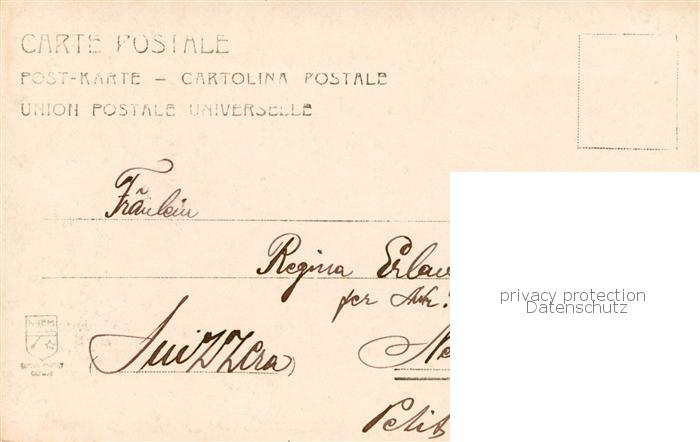 CARTE POSTALE
POST-KARTE – CARTOLINA POSTALE
UNION POSTALE UNIVERSELLE
Fräulein
Regina Erlau
per
(Suizzera) Ne
Petit
privacy protection
Datenschutz